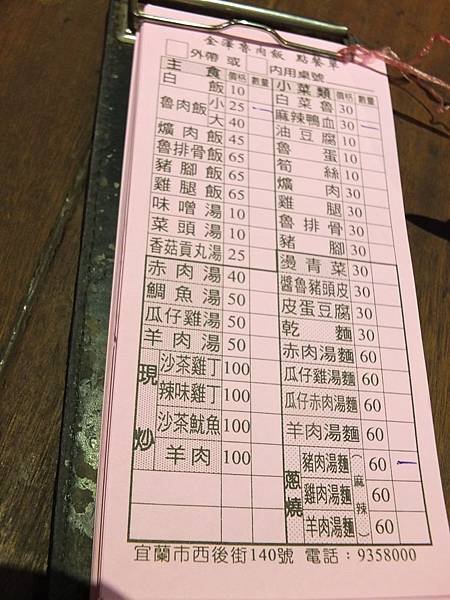 金澤魯肉飯 點餐單
外帶 或 內用桌號
主食 價格 數量
白飯 10
魯肉飯 小 25
大 40
爌肉飯 45
魯排骨飯 65
豬腳飯 65
雞腿飯 65
味噌湯 10
菜頭湯 10
香菇貢丸湯 25
赤肉湯 40
鯛魚湯 50
瓜仔雞湯 50
羊肉湯 50
現炒
沙茶雞丁 100
辣味雞丁 100
沙茶魷魚 100
羊肉 100
小菜類 價格 數量
白菜魯 30
麻辣鴨血 30
油豆腐 10
魯蛋 10
筍絲 10
爌肉 30
雞腿 30
魯排骨 30
豬腳 30
燙青菜 30
醬魯豬頭皮 30
皮蛋豆腐 30
乾麵 30
赤肉湯麵 60
瓜仔雞湯麵 60
瓜仔赤肉湯麵 60
羊肉湯麵 60
蔥燒（麻辣）
豬肉湯麵 60
雞肉湯麵 60
羊肉湯麵 60
宜蘭市西後街140號 電話：9358000